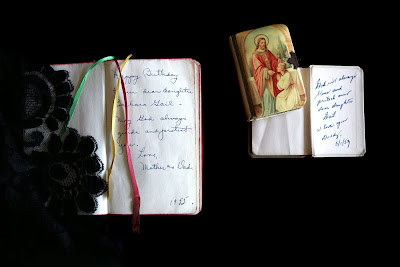 Happy Birthday
dear daughter
Barbara Gail -
May God always
guide and protect
you.
Love,
Mother & Dad
God will always
bless and
protect our
dear daughter
Gail
I love you